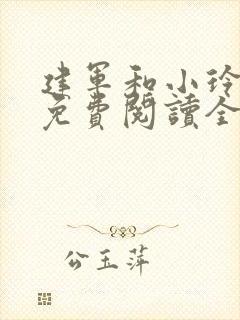 建軍和小玲
免費閱讀全
公玉萍